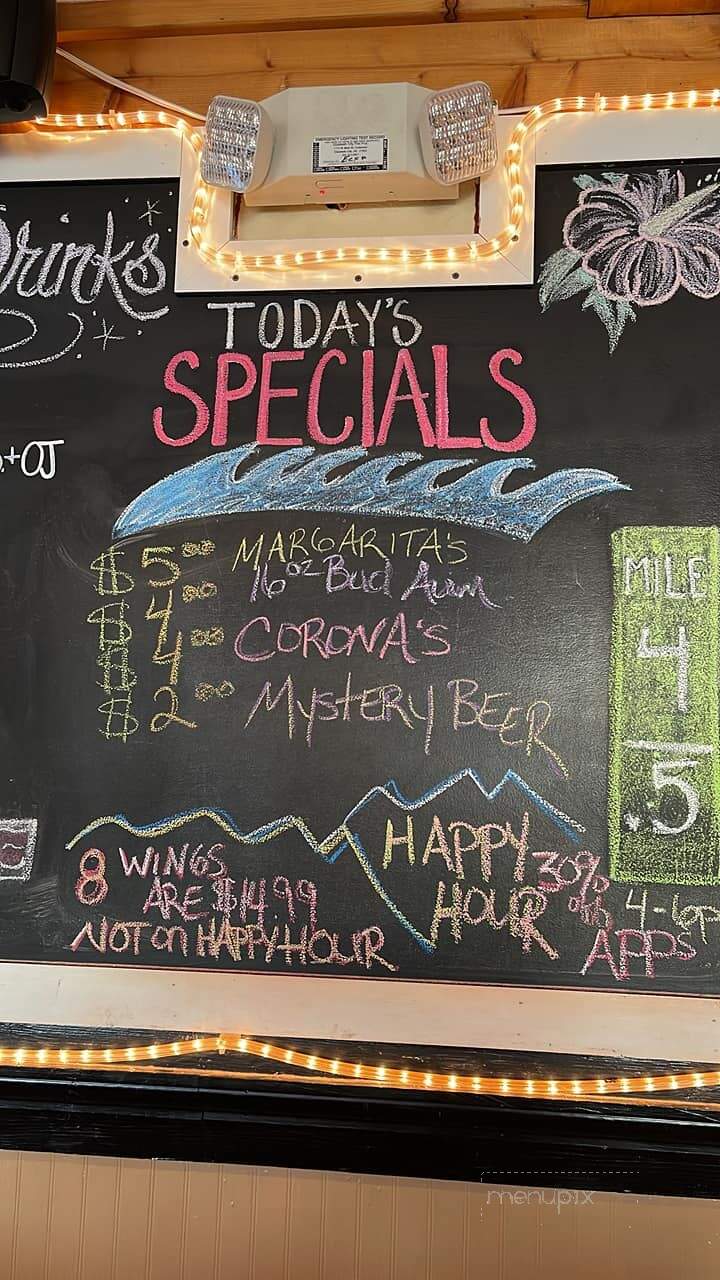 Drinks
TODAY'S
SPECIALS
+OJ
$5.00 MARGARITA'S
$4.00 16oz Bud Alum
$4.00 CORONA'S
$2.00 MYSTERY BEER
MILE
4
.5
8 WINGS
ARE $14.99
NOT on HAPPY HOUR
HAPPY
HOUR
30%
off
4-6P
APPS
EMERGENCY LIGHTING TEST RECORD
menupix